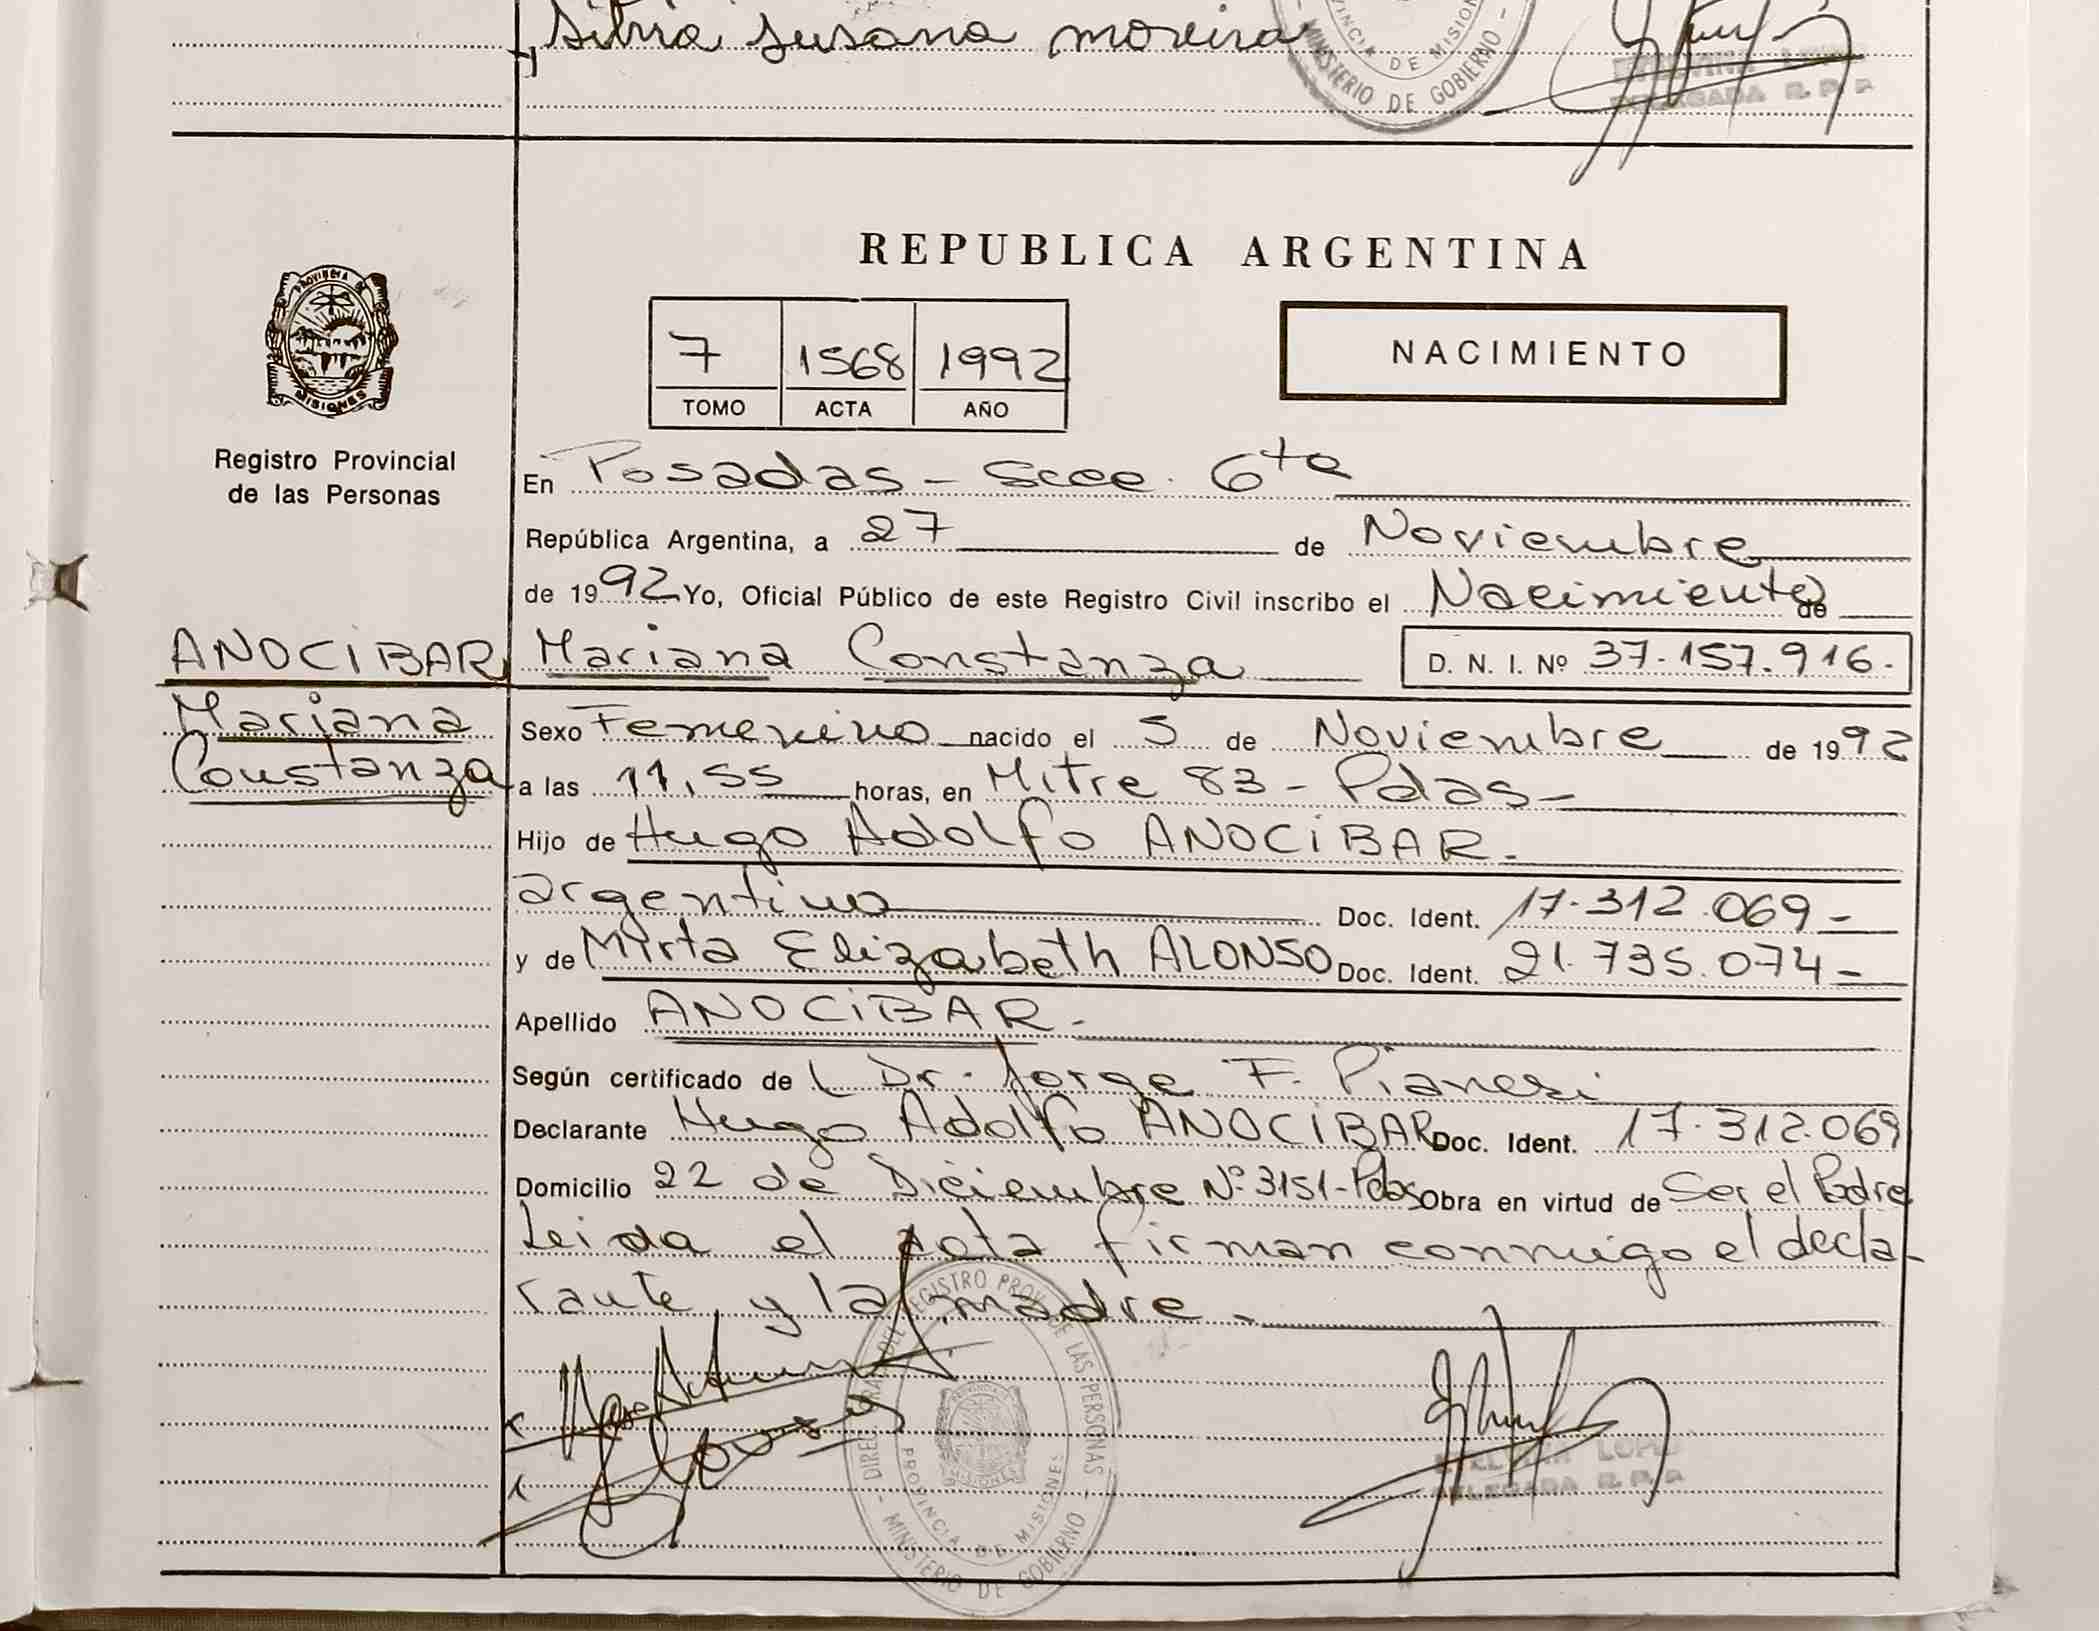 Silvia Susana Moreira
PROVINCIA DE MISIONES
MINISTERIO DE GOBIERNO
DELEGADA R. P. P.
REPUBLICA ARGENTINA
PROVINCIA DE
MISIONES
7 1568 1992
TOMO ACTA AÑO
NACIMIENTO
Registro Provincial
de las Personas
En Posadas - Secc. 6ta
República Argentina, a 27 de Noviembre
de 1992 Yo, Oficial Público de este Registro Civil inscribo el Nacimiento de
ANOCIBAR
Mariana
Constanza
Mariana Constanza D. N. I. Nº 37.157.916.
Sexo Femenino nacido el 5 de Noviembre de 1992
a las 11,55 horas, en Mitre 83 - Pdas -
Hijo de Hugo Adolfo ANOCIBAR.
argentino Doc. Ident. 17.312.069 -
y de Mirta Elizabeth ALONSO Doc. Ident. 21.735.074 -
Apellido ANOCIBAR -
Según certificado de Dr. Jorge F. Pianesi
Declarante Hugo Adolfo ANOCIBAR Doc. Ident. 17.312.069
Domicilio 22 de Diciembre Nº 3151 - Pdas Obra en virtud de Ser el Padre
Leida el acta firman conmigo el decla-
rante y la madre -
DIREC. GRAL. DEL REGISTRO PROV. DE LAS PERSONAS
PROVINCIA DE MISIONES
MINISTERIO DE GOBIERNO
DELEGADA R. P. P.